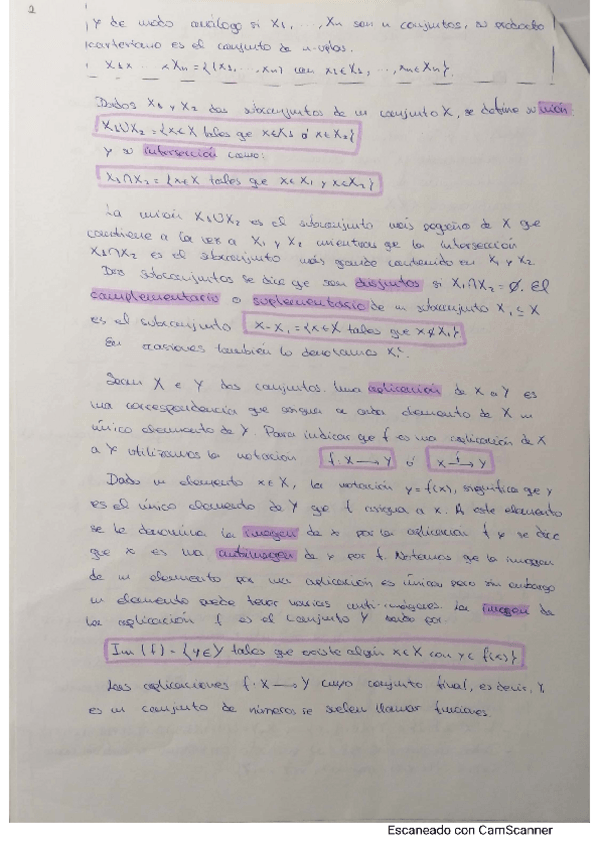 2
y de modo análogo si X₁, ..., Xn son n conjuntos, su producto
cartesiano es el conjunto de n-uplas.
X₁x ... xXn = {(x₁, ..., xn) con x₁∈X₁, ..., xn∈Xn}.
Dados X₁ y X₂ dos subconjuntos de un conjunto X, se define su unión
X₁∪X₂ = {x∈X tales que x∈X₁ ó x∈X₂}
y su intersección como:
X₁∩X₂ = {x∈X tales que x∈X₁ y x∈X₂}
La unión X₁∪X₂ es el subconjunto más pequeño de X que
contiene a la vez a X₁ y X₂ mientras que la intersección
X₁∩X₂ es el subconjunto más grande contenido en X₁ y X₂
Dos subconjuntos se dice que son disjuntos si X₁∩X₂ = ∅. El
complementario o suplementario de un subconjunto X₁ ⊆ X
es el subconjunto X-X₁ = {x∈X tales que x∉X₁}
En ocasiones también lo denotamos X₁ᶜ.
Sean X e Y dos conjuntos. Una aplicación de X a Y es
una correspondencia que asigna a cada elemento de X un
único elemento de Y. Para indicar que f es una aplicación de X
a Y utilizamos la notación f: X → Y ó X f→ Y
Dado un elemento x∈X, la notación y = f(x), significa que y
es el único elemento de Y que f asigna a x. A este elemento
se le denomina la imagen de x por la aplicación f y se dice
que x es una antiimagen de y por f. Notemos que la imagen
de un elemento por una aplicación es única pero sin embargo
un elemento puede tener varias anti-imágenes. La imagen de
la aplicación f es el conjunto Y dado por.
Im (f) = {y∈Y tales que existe algún x∈X con y = f(x)}
Las aplicaciones f: X → Y cuyo conjunto final, es decir, Y
es un conjunto de números se suelen llamar funciones.
Escaneado con CamScanner